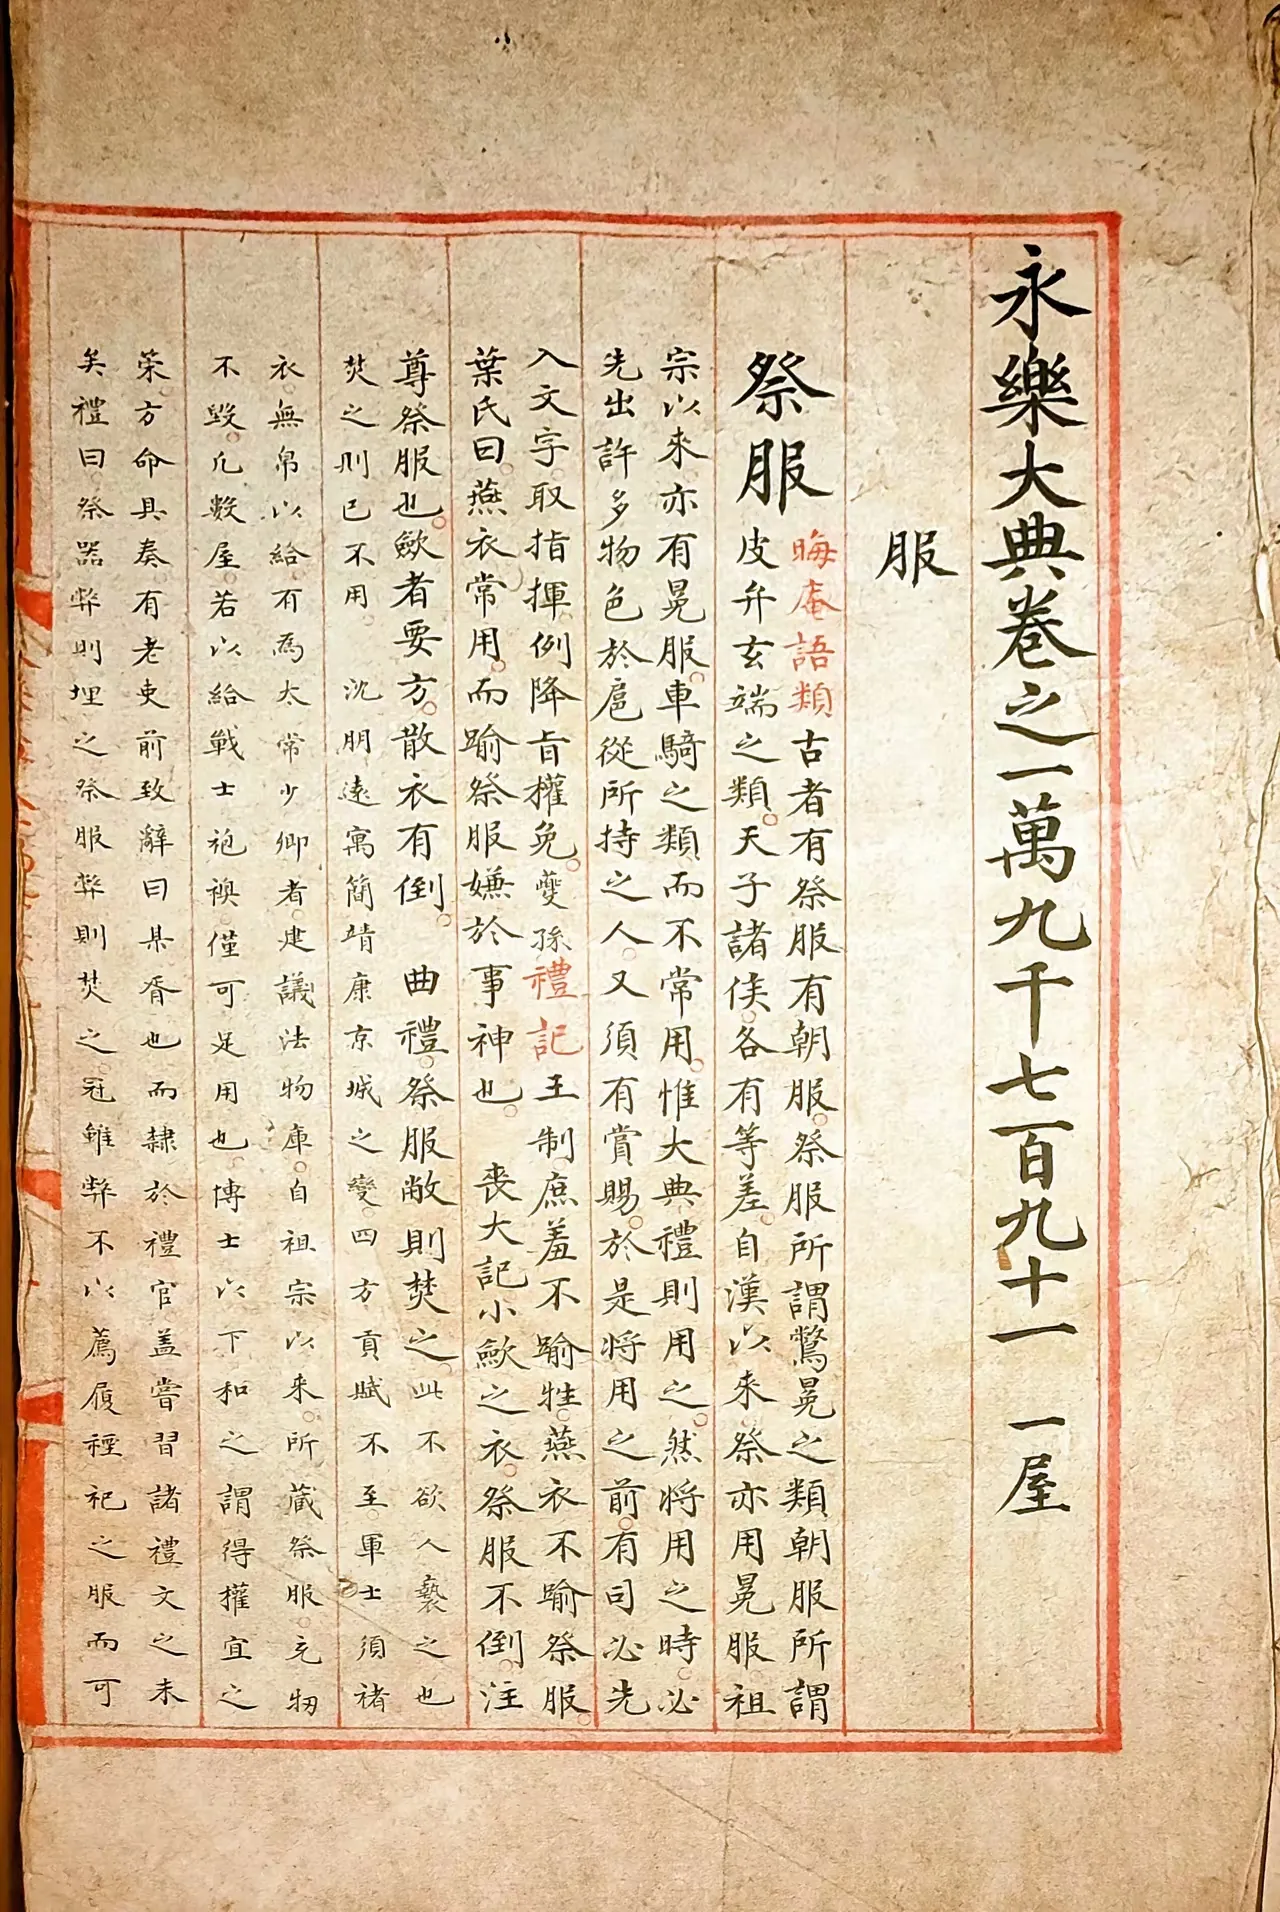 永樂大典卷之一萬九千七百九十一 一屋
服
祭服
晦庵語類古者有祭服有朝服祭服所謂鷩冕之類朝服所謂
皮弁玄端之類天子諸侯各有等差自漢以來祭亦用冕服祖
宗以來亦有冕服車騎之類而不常用惟大典禮則用之然將用之時必
先出許多物色於扈從所持之人又須有賞賜於是將用之前有司必先
入文字取指揮例降旨權免夔孫禮記王制庶羞不踰牲燕衣不踰祭服
葉氏曰燕衣常用而踰祭服嫌於事神也 喪大記小歛之衣祭服不倒注
尊祭服也歛者要方散衣有倒 曲禮祭服敝則焚之此不欲人褻之也
焚之則已不用 沈朋遠寓簡靖康京城之變四方貢賦不至軍士須褚
衣無帛以給有為太常少卿者建議法物庫自祖宗以來所藏祭服充牣
不毀凡數屋若以給戰士袍襖僅可足用也博士以下和之謂得權宜之
策方命具奏有老吏前致辭曰某胥也而隸於禮官盖嘗習諸禮文之末
矣禮曰祭器弊則埋之祭服弊則焚之冠雖弊不以薦履禋祀之服而可